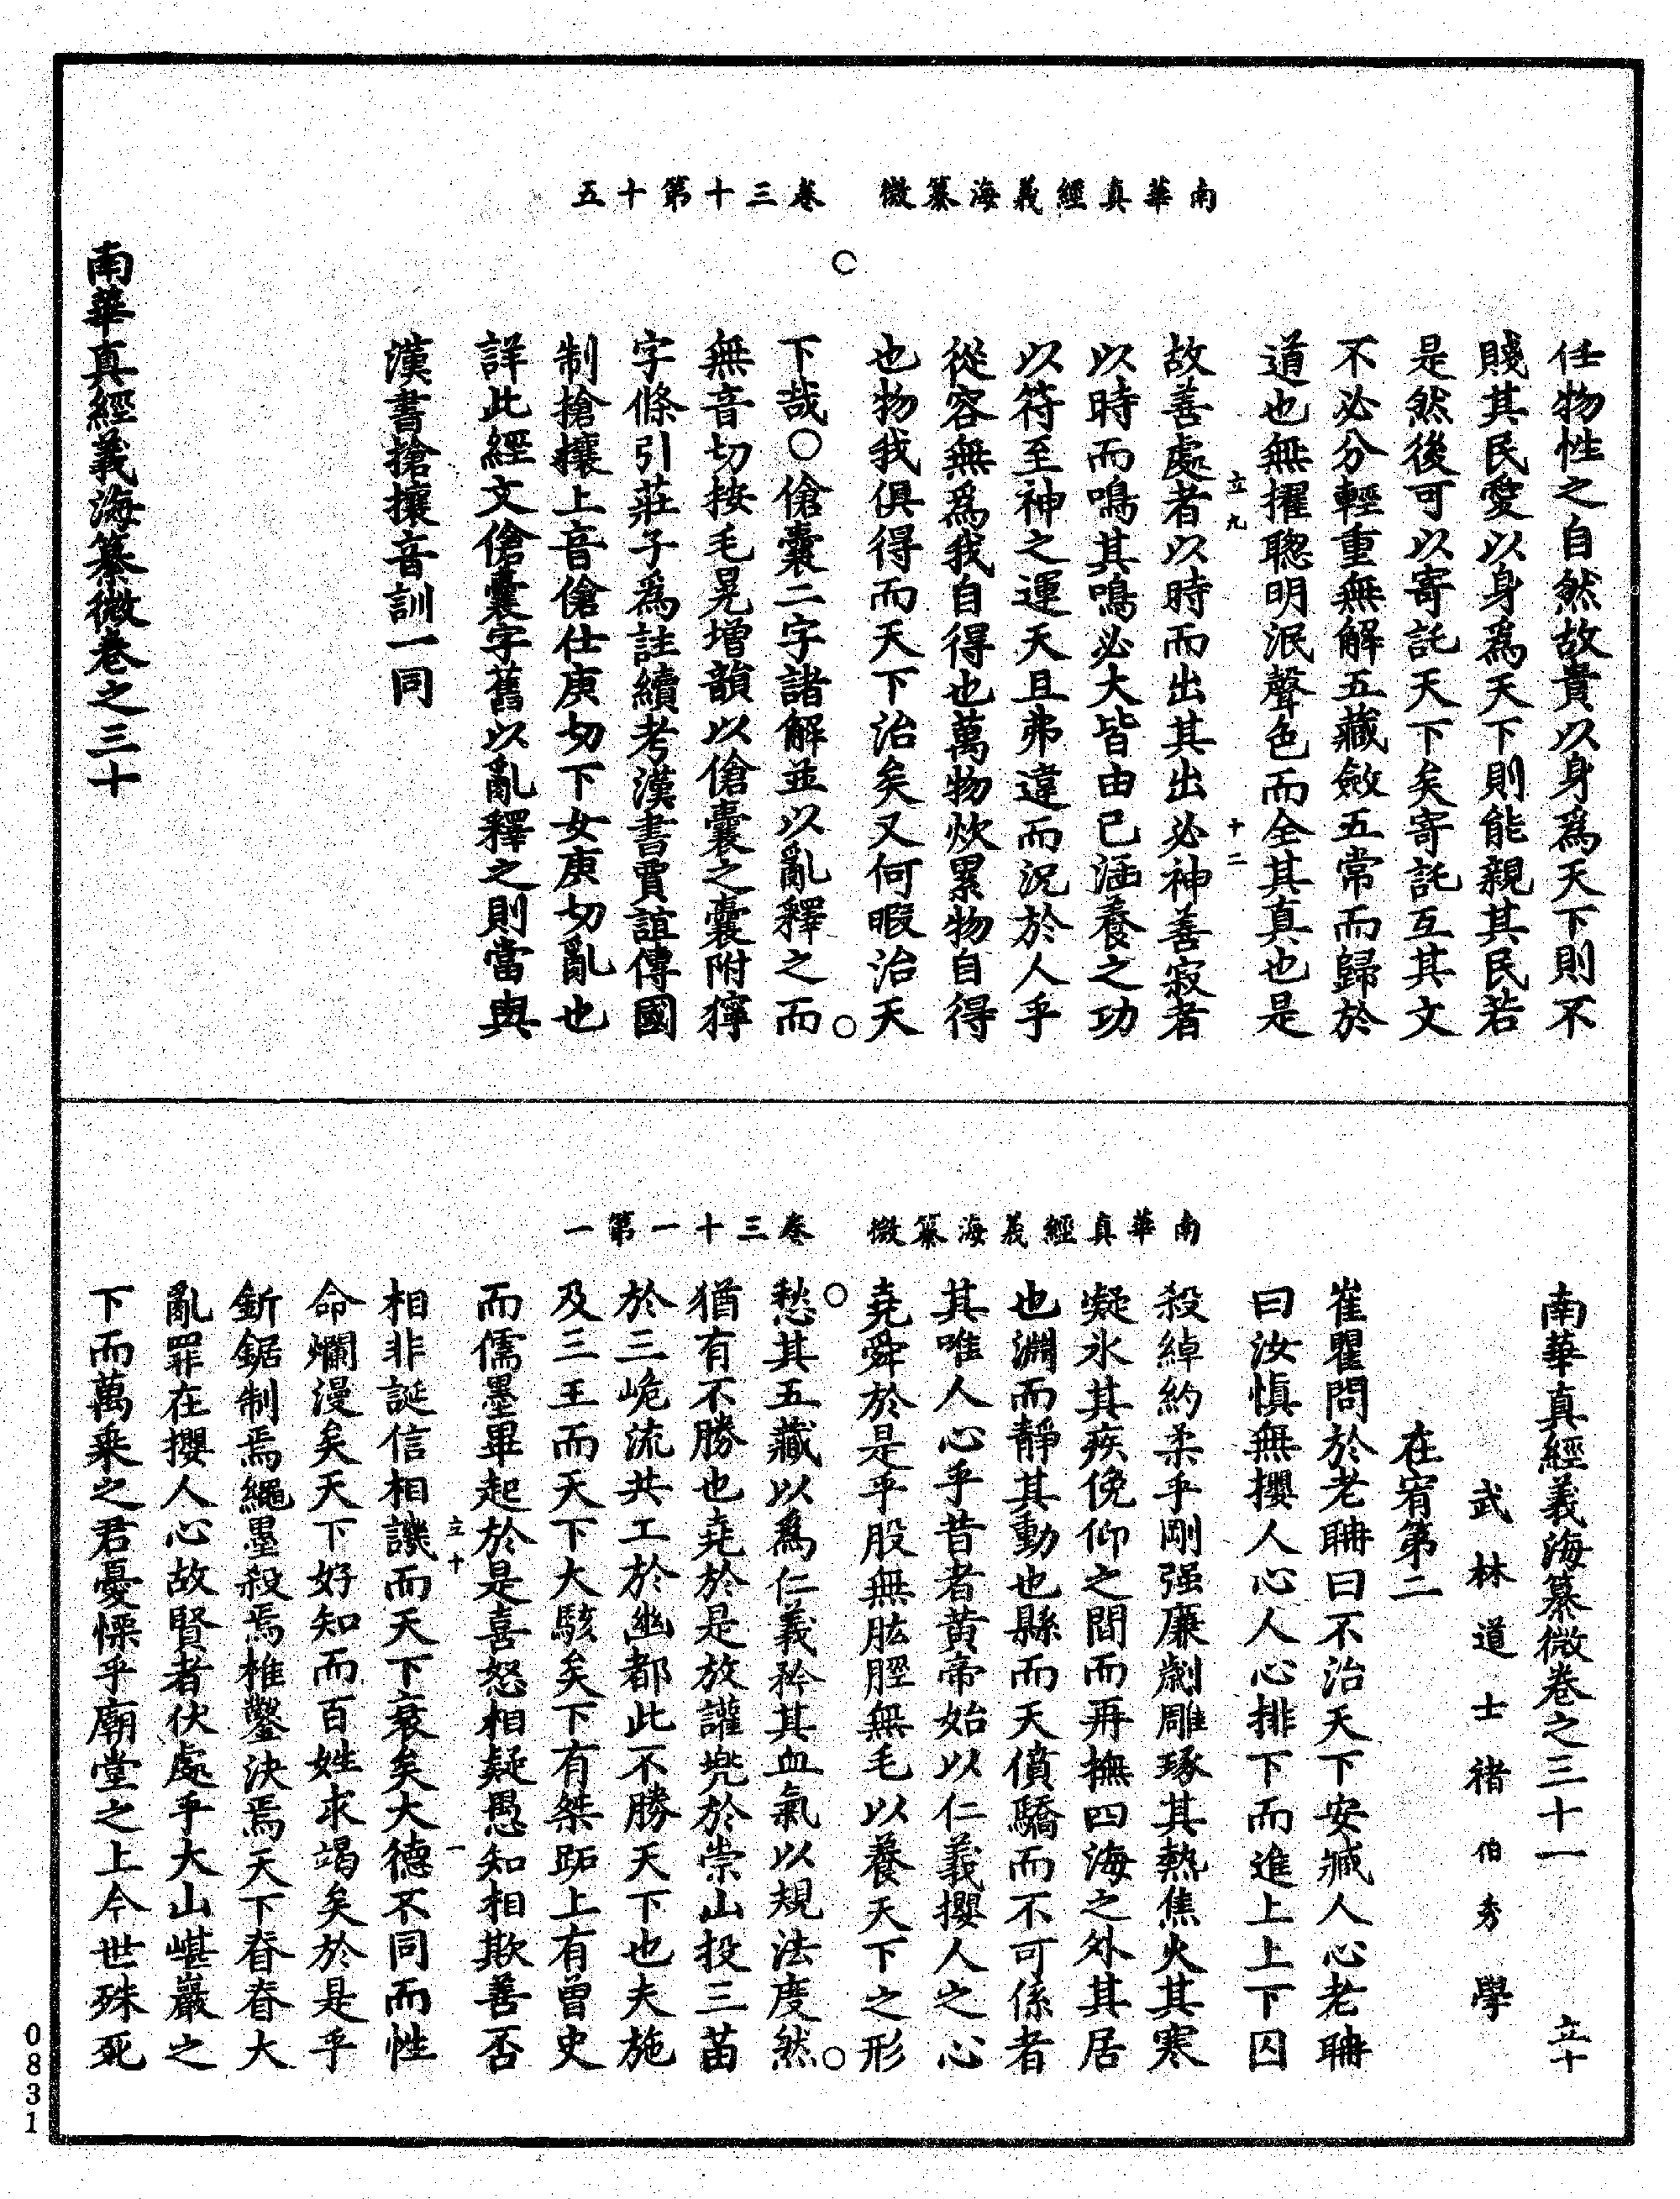 南華真經義海纂微　卷三十第十五
任物性之自然故貴以身爲天下則不
賤其民愛以身爲天下則能親其民若
是然後可以寄託天下矣寄託互其文
不必分輕重無解五藏斂五常而歸於
道也無擢聦明泯聲色而全其真也是
立九　十二
故善處者以時而出其出必神善寂者
以時而鳴其鳴必大皆由已涵養之功
以符至神之運天且弗違而況於人乎
從容無爲我自得也萬物炊累物自得
也物我俱得而天下治矣又何暇治天
下哉○傖囊二字諸解並以亂釋之而
無音切按毛晃增韻以傖囊之囊附獰
字條引莊子爲註續考漢書賈誼傳國
制搶攘上音傖仕庚切下女庚切亂也
詳此經文傖囊字舊以亂釋之則當與
漢書搶攘音訓一同
南華真經義海纂微卷之三十
南華真經義海纂微　卷三十一第一
南華真經義海纂微卷之三十一　立十
武林道士褚伯秀學
在宥第二
崔瞿問於老聃曰不治天下安臧人心老聃
曰汝慎無攖人心人心排下而進上上下囚
殺綽約柔乎剛强廉劌雕琢其熱焦火其寒
凝氷其疾俛仰之間而再撫四海之外其居
也淵而靜其動也縣而天僨驕而不可係者
其唯人心乎昔者黃帝始以仁義攖人之心
堯舜於是乎股無胈脛無毛以養天下之形
愁其五藏以爲仁義矜其血氣以規法度然
猶有不勝也堯於是放讙兠於崇山投三苗
於三峗流共工於幽都此不勝天下也夫施
及三王而天下大駭矣下有桀跖上有曾史
而儒墨畢起於是喜怒相疑愚知相欺善否
立十　一
相非誕信相譏而天下衰矣大德不同而性
命爛漫矣天下好知而百姓求竭矣於是乎
釿鋸制焉繩墨殺焉椎鑿決焉天下脊脊大
亂罪在攖人心故賢者伏處乎大山嵁巖之
下而萬乘之君憂慄乎廟堂之上今世殊死
0831